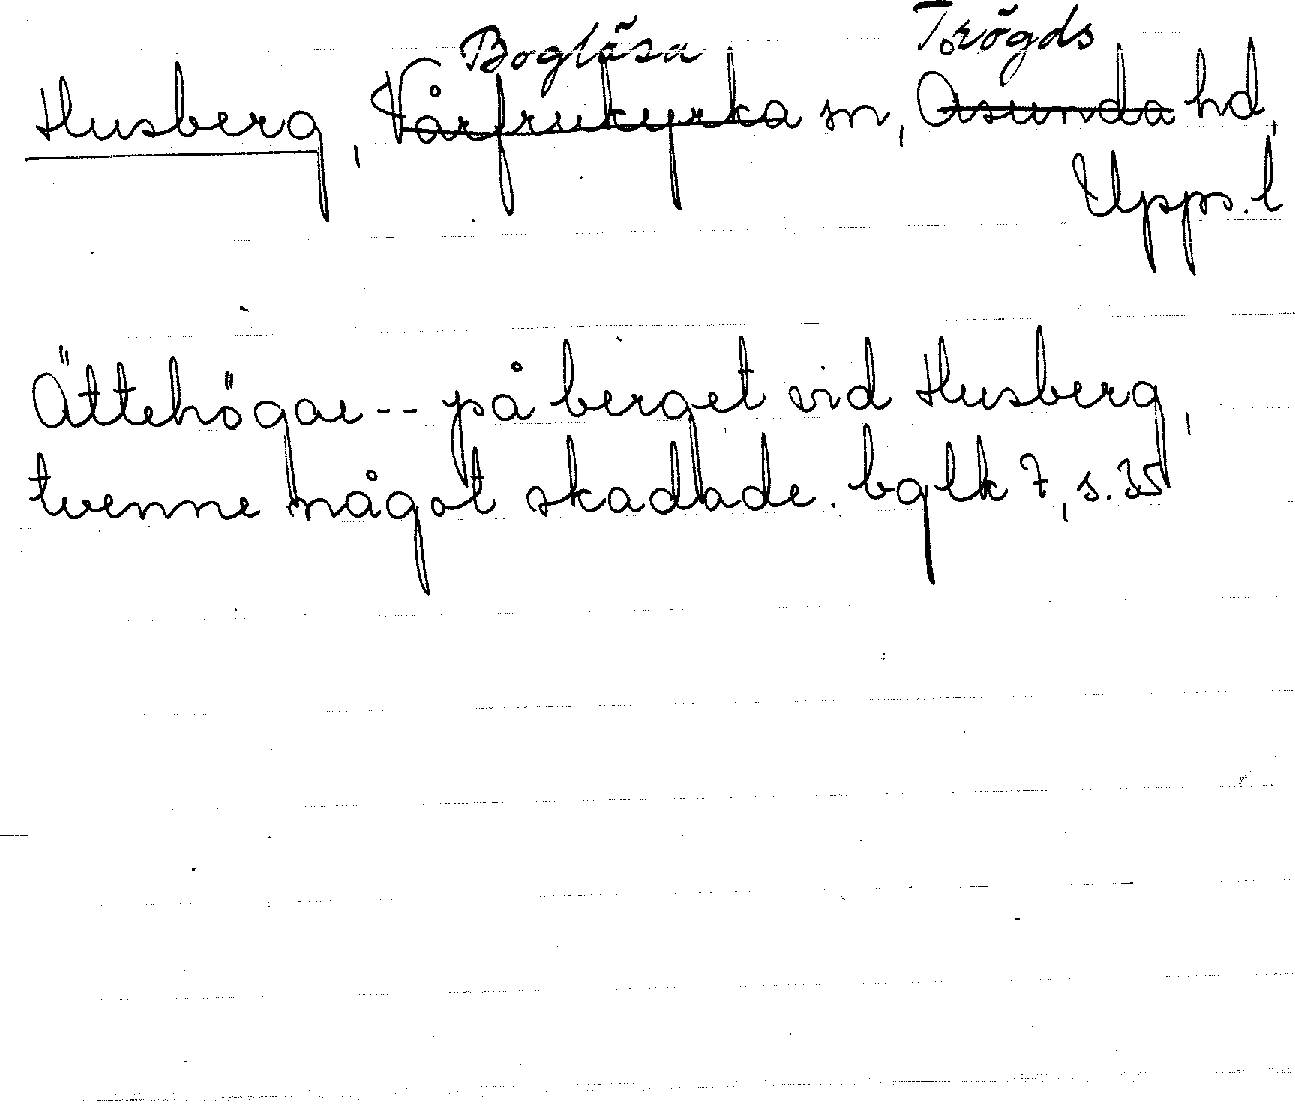 Boglösa Trögds
Husberg, Vårfrukyrka sn, Åsunda hd,
Upps. l
Ättehögar -- på berget vid Husberg,
tvenne något skadade. bglk 7, s. 35